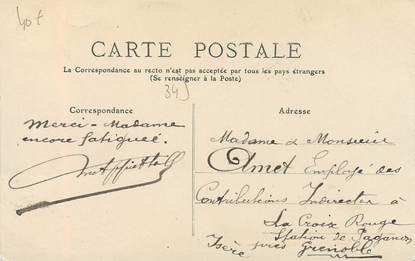 40f
CARTE POSTALE
La Correspondance au recto n'est pas acceptée par tous les pays étrangers
(Se renseigner à la Poste)
345
Correspondance
Adresse
Merci - Madame
encore fatiguée.
Madame & Monsieur
Amet Employé des
Contributions Indirectes à
La Croix Rouge
Station de
Isère près Grenoble